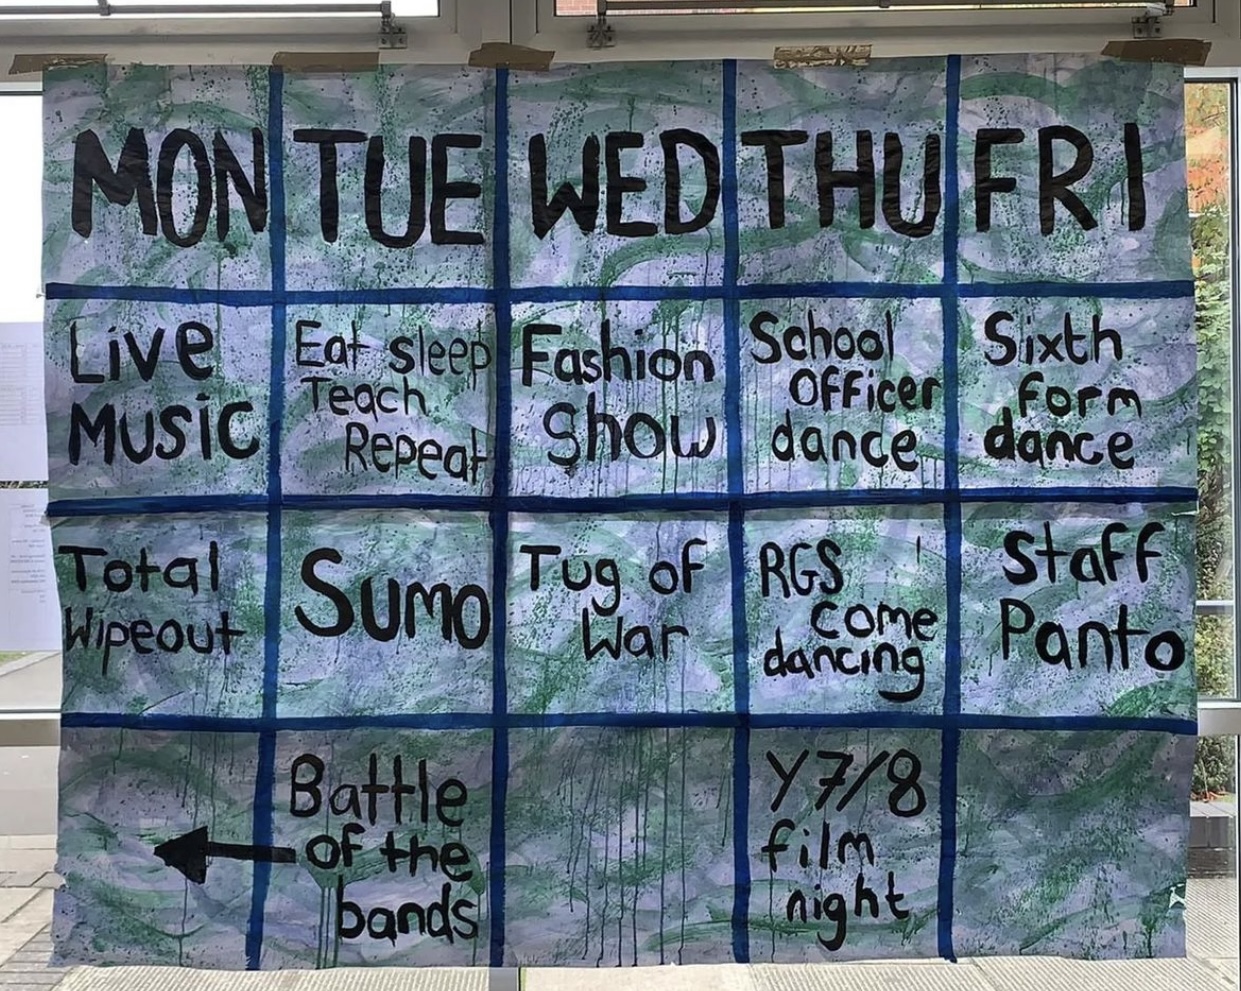 MON TUE WED THU FRI
Live
Music
Eat sleep
Teach
Repeat
Fashion
Show
School
Officer
dance
Sixth
form
dance
Total
Wipeout
Sumo
Tug of
War
RGS
come
dancing
Staff
Panto
Battle
of the
bands
Y7/8
film
night